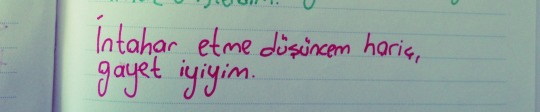 İntahar etme düşüncem hariç,
gayet iyiyim.